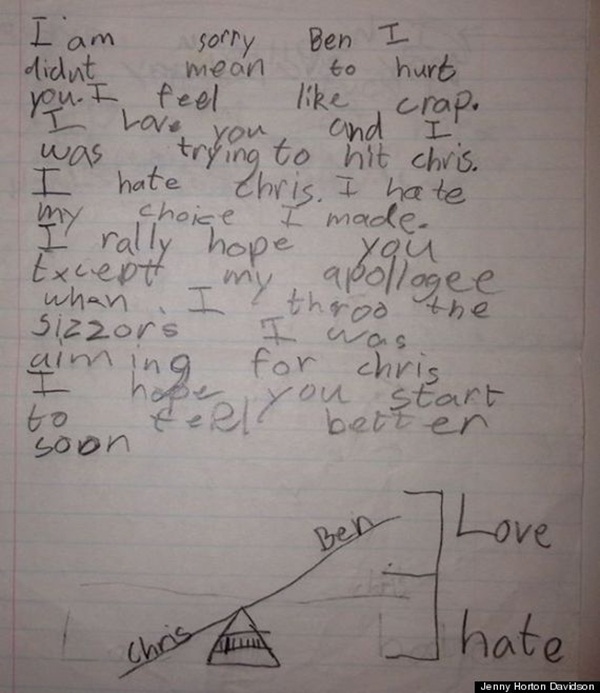 I am sorry Ben I
didnt mean to hurt
you. I feel like crap.
I Love you and I
was trying to hit chris.
I hate chris. I hate
my choice I made.
I rally hope you
Except my apollogee
whan I throo the
Sizzors I was
aiming for chris
I hope you start
to feel better
soon
Ben
Love
Chris
hate
Jenny Horton Davidson